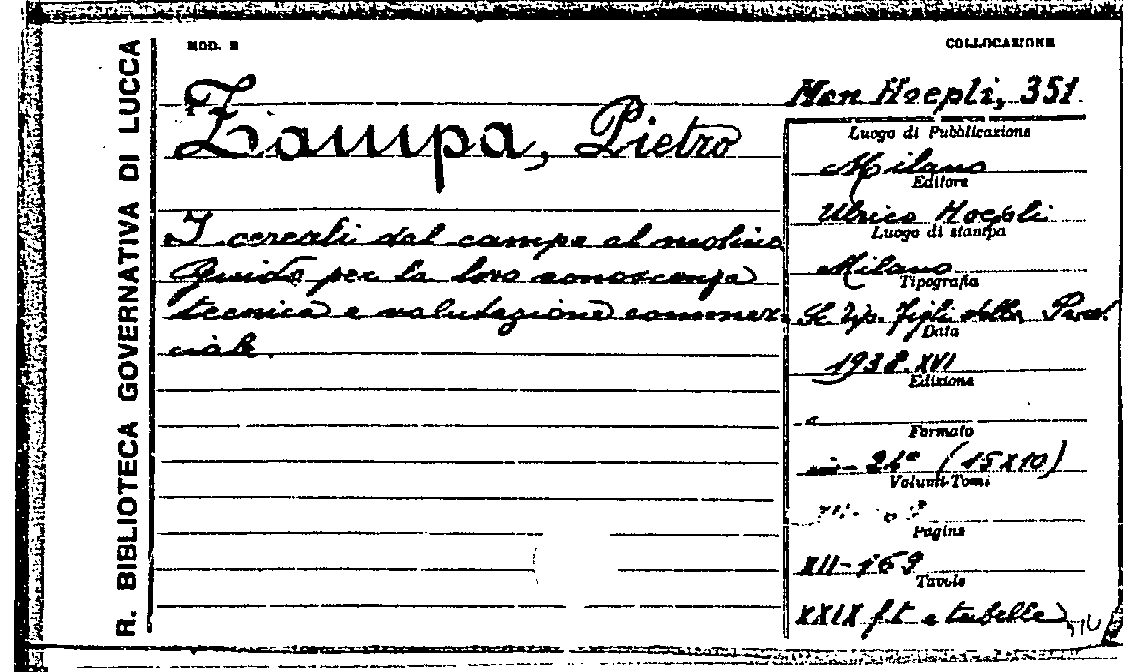 R. BIBLIOTECA GOVERNATIVA DI LUCCA
MOD. B
COLLOCAZIONE
Man Hoepli, 351
Zampa, Pietro
I cereali dal campo al molino
Guida per la loro conoscenza
tecnica e valutazione commer-
ciale.
Luogo di Pubblicazione
Milano
Editore
Ulrico Hoepli
Luogo di stampa
Milano
Tipografia
Tip. Figli della Provv.
Data
1938. XVI
Edizione
Formato
in-24° (15x10)
Volumi-Tomi
Pagine
XII-169
Tavole
XXIX f.t. e tabelle